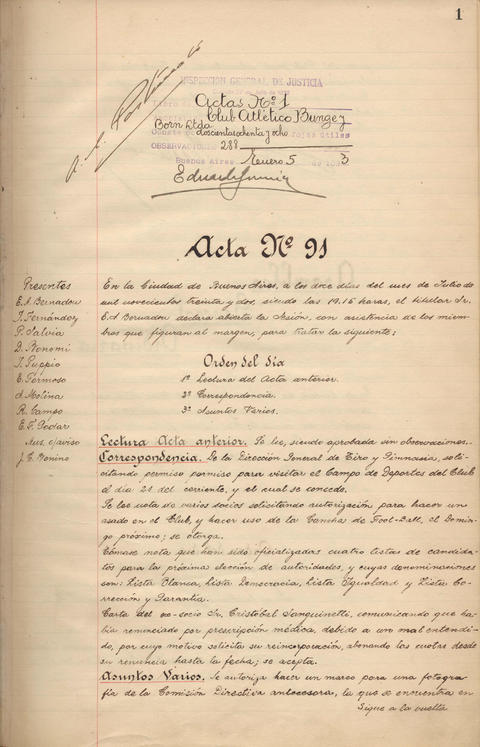 1
INSPECCIÓN GENERAL DE JUSTICIA
Actas Nº 1
Club Atlético Bunge y
Born Ltda.
doscientas ochenta y ocho
rojas útiles
OBSERVACIONES 288
Buenos Aires, Enero 5 de 193 3
Acta Nº 91
Presentes
E. A. Bernadou
T. Fernández
P. Salvia
D. Bonomi
J. Puppio
E. Formoso
A. Molina
R. Campo
E. F. Godar
Aus. c/aviso
J. C. Bonino
En la Ciudad de Buenos Aires, a los doce días del mes de Julio de
mil novecientos treinta y dos, siendo las 19.15 horas, el titular Sr.
E. A. Bernadou declara abierta la Sesión, con asistencia de los miem-
bros que figuran al margen, para tratar la siguiente:
Orden del día
1º Lectura del Acta anterior.
2º Correspondencia.
3º Asuntos Varios.
Lectura Acta anterior. Se lee, siendo aprobada sin observaciones.
Correspondencia. De la Dirección General de Tiro y Gimnasia, soli-
citando permiso permiso para visitar el Campo de Deportes del Club
el día 21 del corriente, y el cual se concede.
Se lee nota de varios socios solicitando autorización para hacer un
asado en el Club, y hacer uso de la Cancha de Foot-Ball, el Domin-
go próximo; se otorga.
Tómase nota que han sido oficializadas cuatro listas de candida-
tos para la próxima elección de autoridades, y cuyas denominaciones
son: Lista Blanca, Lista Democracia, Lista Igualdad y Lista Co-
rrección y Garantía.
Carta del ex-socio Sr. Cristóbal Sanguinetti, comunicando que ha-
bía renunciado por prescripción médica, debido a un mal entendi-
do, por cuyo motivo solicita su reincorporación, abonando las cuotas desde
su renuncia hasta la fecha; se acepta.
Asuntos Varios. Se autoriza hacer un marco para una fotogra-
fía de la Comisión Directiva antecesora, la que se encuentra en
Sigue a la vuelta